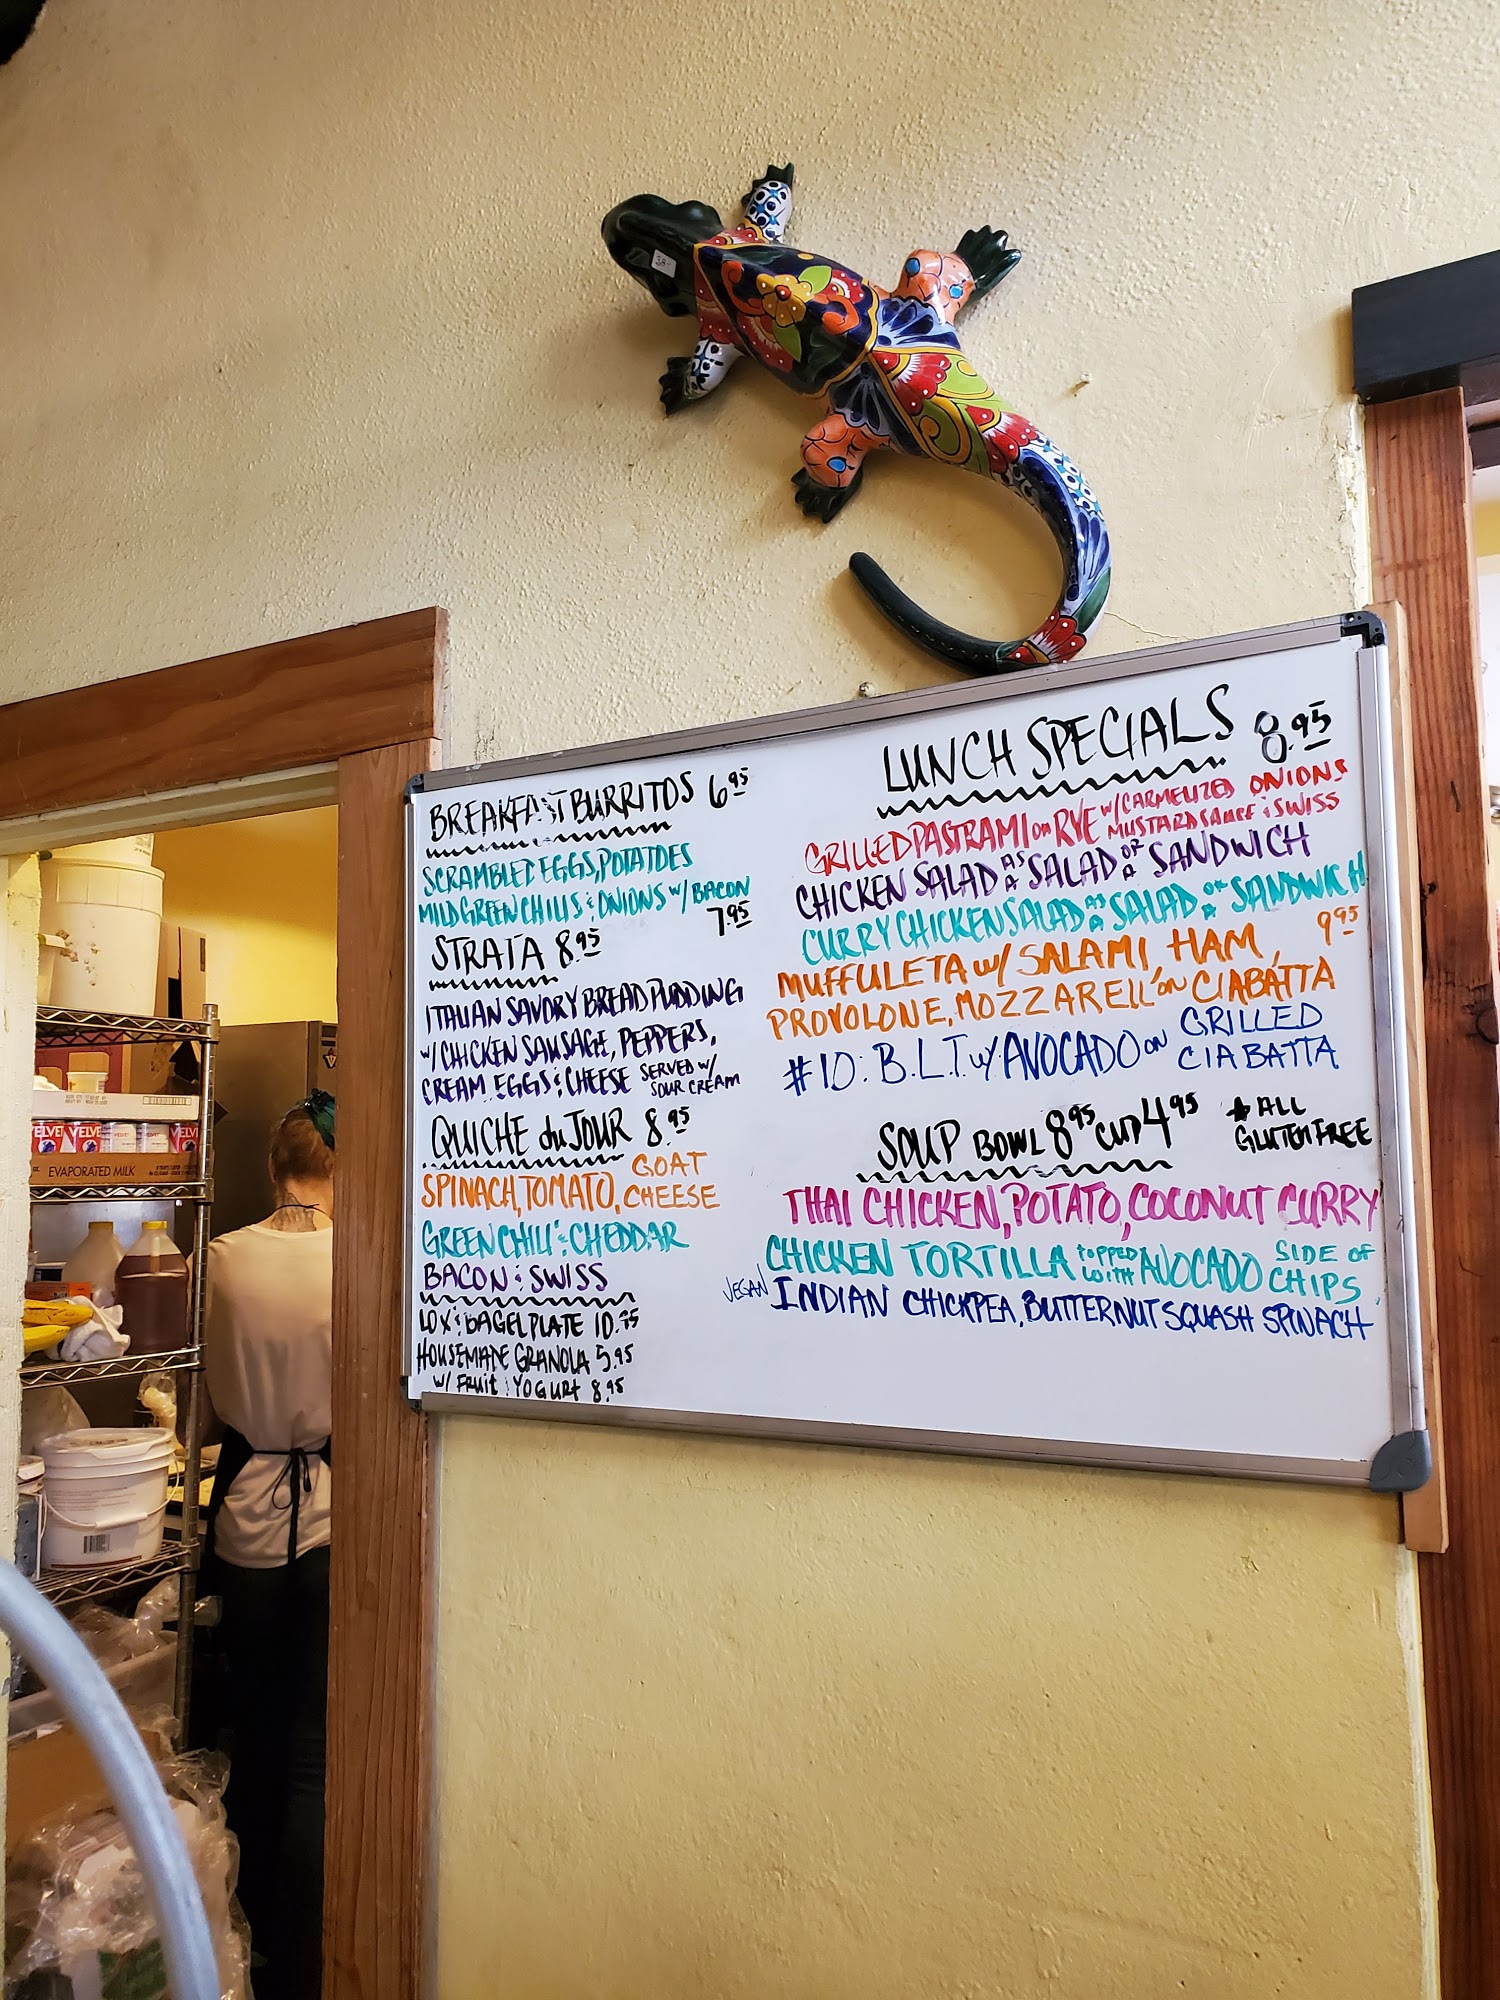 38-
BREAKFAST BURRITOS 6.95
SCRAMBLED EGGS, POTATOES
MILD GREEN CHILIS & ONIONS w/ BACON
7.95
STRATA 8.95
ITALIAN SAVORY BREAD PUDDING
w/ CHICKEN SAUSAGE, PEPPERS,
CREAM, EGGS & CHEESE SERVED w/
SOUR CREAM
QUICHE du JOUR 8.95
SPINACH, TOMATO, GOAT
CHEESE
GREEN CHILI & CHEDDAR
BACON & SWISS
LOX & BAGEL PLATE 10.75
HOUSEMADE GRANOLA 5.95
w/ FRUIT & YOGURT 8.95
LUNCH SPECIALS 8.95
GRILLED PASTRAMI on RYE w/ CARMELIZED ONIONS
MUSTARD SAUCE & SWISS
CHICKEN SALAD AS A SALAD OR A SANDWICH
CURRY CHICKEN SALAD AS A SALAD OR A SANDWICH
MUFFULETA w/ SALAMI, HAM, 9.95
PROVOLONE, MOZZARELL on CIABATTA
#10: B.L.T. w/ AVOCADO on GRILLED
CIABATTA
SOUP BOWL 8.95 CUP 4.95 * ALL
GLUTEN FREE
THAI CHICKEN, POTATO, COCONUT CURRY
CHICKEN TORTILLA TOPPED WITH AVOCADO SIDE OF
CHIPS
VEGAN INDIAN CHICKPEA, BUTTERNUT SQUASH SPINACH
VELVET
EVAPORATED MILK